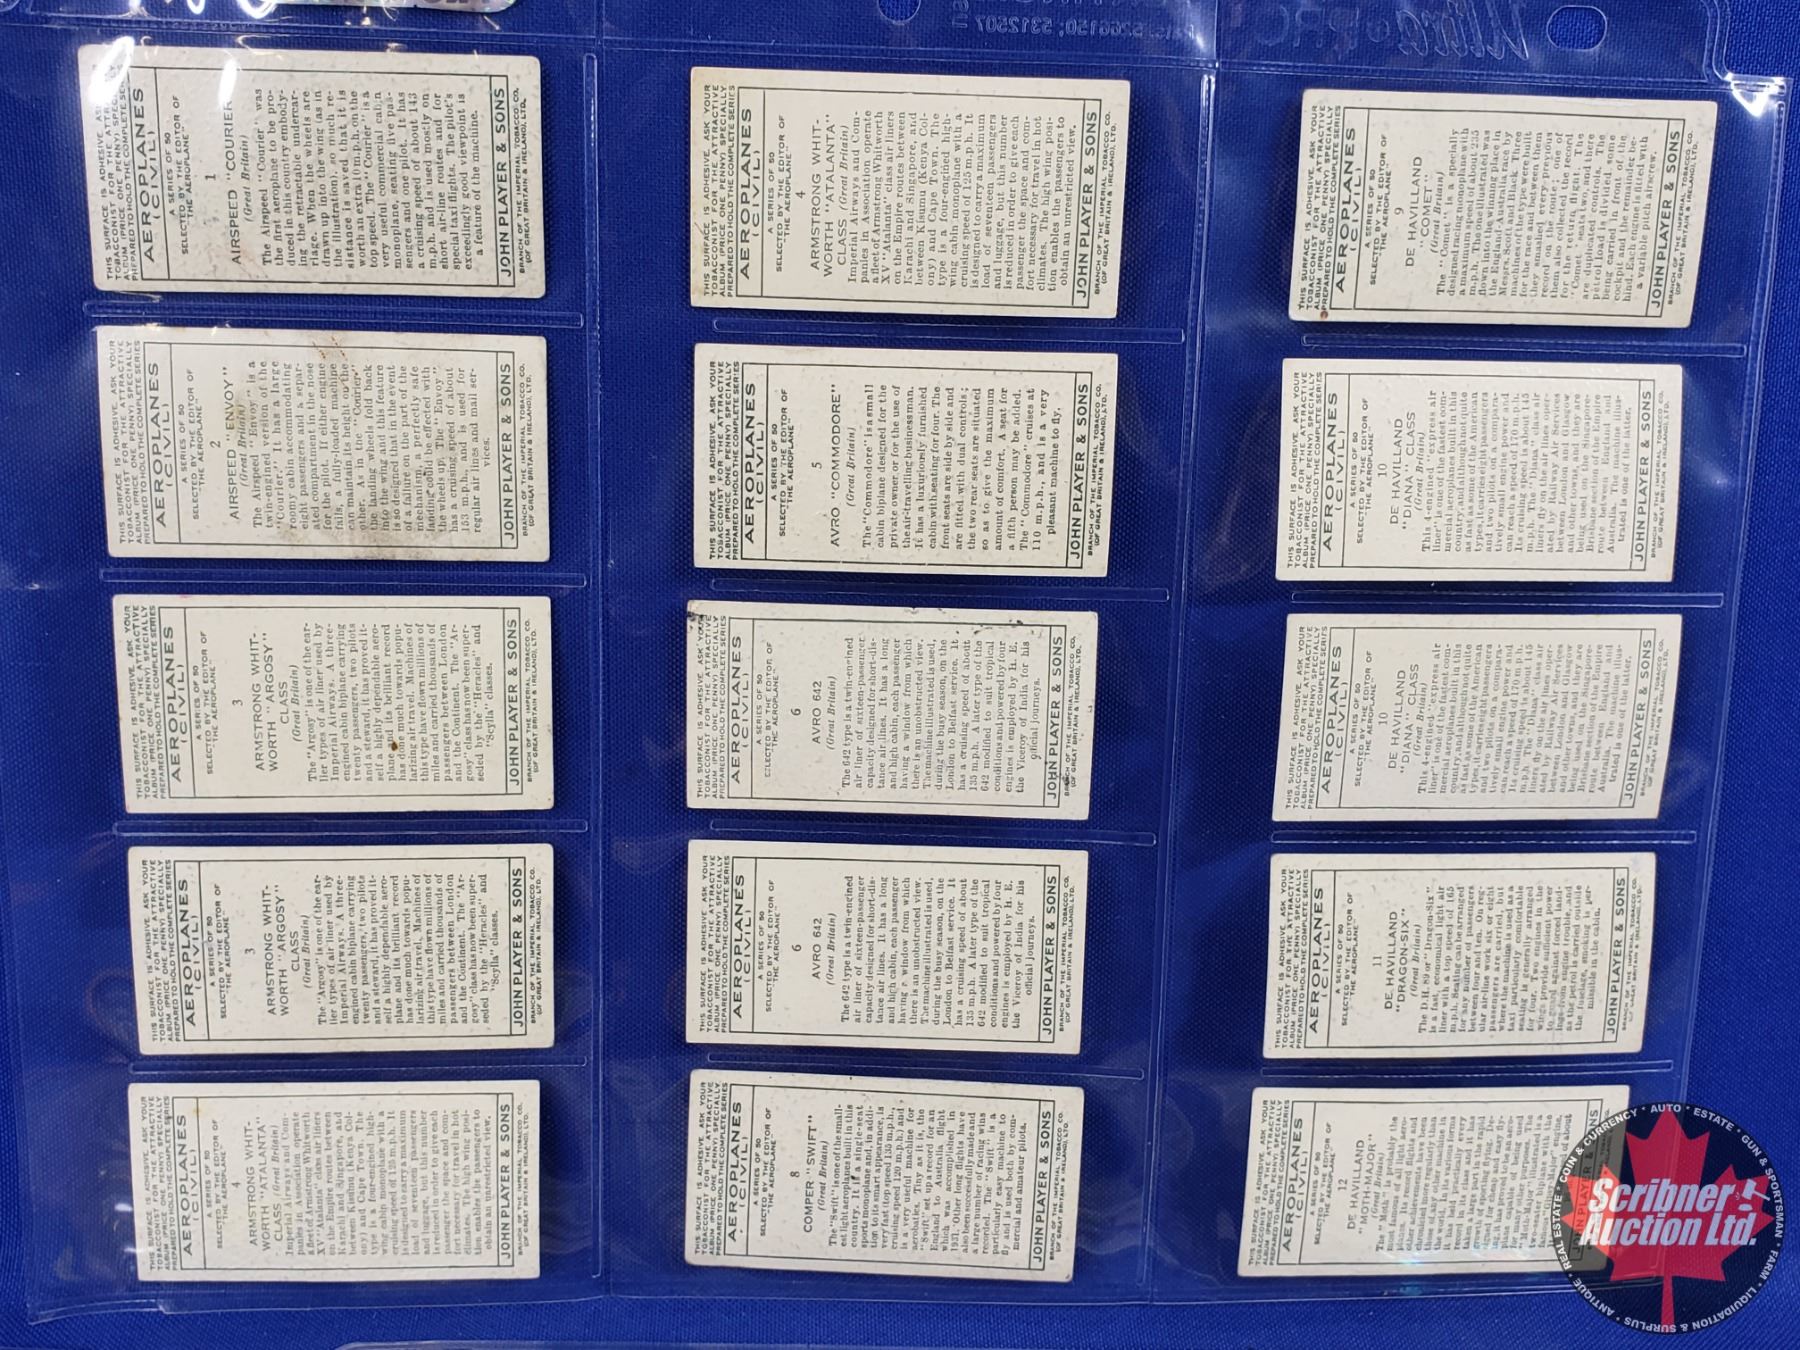 THIS SURFACE IS ADHESIVE. ASK YOUR
TOBACCONIST FOR THE ATTRA
ALBUM (PRICE ONE PENNY) SPEC
PREPARED TO HOLD THE COMPLETE SER
AEROPLANES
(CIVIL)
A SERIES OF 50
SELECTED BY THE EDITOR OF
"THE AEROPLANE"
1
AIRSPEED "COURIER"
(Great Britain)
The Airspeed "Courier" was
the first aeroplane to be pro-
duced in this country embody-
ing the retractable undercar-
riage. When the wheels are
drawn into the wing (as in
the illustration), so much re-
sistance is saved, that it is
worth an extra 10 m.p.h. on the
top speed. The "Courier" is a
very useful commercial cabin
monoplane, seating five pas-
sengers and one pilot. It has
a cruising speed of about 143
m.p.h. and is used mostly on
short air-line routes and for
special taxi flights. The pilot's
exceedingly good viewpoint is
a feature of the machine.
JOHN PLAYER & SONS
BRANCH OF THE IMPERIAL TOBACCO CO.
(OF GREAT BRITAIN & IRELAND), LTD.
THIS SURFACE IS ADHESIVE. ASK YOUR
TOBACCONIST FOR THE ATTRACTIVE
ALBUM (PRICE ONE PENNY) SPECIALLY
PREPARED TO HOLD THE COMPLETE SERIES
AEROPLANES
(CIVIL)
A SERIES OF 50
SELECTED BY THE EDITOR OF
"THE AEROPLANE"
2
AIRSPEED "ENVOY"
(Great Britain)
The Airspeed "Envoy" is a
twin-engined version of the
"Courier." It has a large
roomy cabin accommodating
eight passengers and a separ-
ated compartment in the nose
for the pilot. If either engine
fails, a fully-loaded machine
can maintain its height on the
other. As in the "Courier"
the landing wheels fold back
into the wing and this feature
is so designed that in the event
of a failure on the part of the
mechanism, a perfectly safe
landing could be effected with
the wheels up. The "Envoy"
has a cruising speed of about
153 m.p.h., and is used for
regular air lines and mail ser-
vices.
JOHN PLAYER & SONS
BRANCH OF THE IMPERIAL TOBACCO CO.
(OF GREAT BRITAIN & IRELAND), LTD.
THIS SURFACE IS ADHESIVE. ASK YOUR
TOBACCONIST FOR THE ATTRACTIVE
ALBUM (PRICE ONE PENNY) SPECIALLY
PREPARED TO HOLD THE COMPLETE SERIES
AEROPLANES
(CIVIL)
A SERIES OF 50
SELECTED BY THE EDITOR OF
"THE AEROPLANE"
3
ARMSTRONG WHIT-
WORTH "ARGOSY"
CLASS
(Great Britain)
The "Argosy" is one of the ear-
lier types of air liner used by
Imperial Airways. A three-
engined cabin biplane carrying
twenty passengers, two pilots
and a steward, it has proved it-
self a highly dependable aero-
plane and its brilliant record
has done much towards popu-
larizing air travel. Machines of
this type have flown millions of
miles and carried thousands of
passengers between London
and the Continent. The "Ar-
gosy" class has now been super-
seded by the "Heracles" and
"Scylla" classes.
JOHN PLAYER & SONS
BRANCH OF THE IMPERIAL TOBACCO CO.
(OF GREAT BRITAIN & IRELAND), LTD.
THIS SURFACE IS ADHESIVE. ASK YOUR
TOBACCONIST FOR THE ATTRACTIVE
ALBUM (PRICE ONE PENNY) SPECIALLY
PREPARED TO HOLD THE COMPLETE SERIES
AEROPLANES
(CIVIL)
A SERIES OF 50
SELECTED BY THE EDITOR OF
"THE AEROPLANE"
3
ARMSTRONG WHIT-
WORTH "ARGOSY"
CLASS
(Great Britain)
The "Argosy" is one of the ear-
lier types of air liner used by
Imperial Airways. A three-
engined cabin biplane carrying
twenty passengers, two pilots
and a steward, it has proved it-
self a highly dependable aero-
plane and its brilliant record
has done much towards popu-
larizing air travel. Machines of
this type have flown millions of
miles and carried thousands of
passengers between London
and the Continent. The "Ar-
gosy" class has now been super-
seded by the "Heracles" and
"Scylla" classes.
JOHN PLAYER & SONS
BRANCH OF THE IMPERIAL TOBACCO CO.
(OF GREAT BRITAIN & IRELAND), LTD.
THIS SURFACE IS ADHESIVE. ASK YOUR
TOBACCONIST FOR THE ATTRACTIVE
ALBUM (PRICE ONE PENNY) SPECIALLY
PREPARED TO HOLD THE COMPLETE SERIES
AEROPLANES
(CIVIL)
A SERIES OF 50
SELECTED BY THE EDITOR OF
"THE AEROPLANE"
4
ARMSTRONG WHIT-
WORTH "ATALANTA"
CLASS (Great Britain)
Imperial Airways and Com-
panies in Association operate
a fleet of Armstrong Whitworth
XV "Atalanta" class air liners
on the Empire routes between
Karachi and Singapore, and
between Kisumu (Kenya Col-
ony) and Cape Town. The
type is a four-engined high-
wing cabin monoplane with a
cruising speed of 125 m.p.h. It
is designed to carry a maximum
load of seventeen passengers
and luggage, but this number
is reduced in order to give each
passenger the space and com-
fort necessary for travel in hot
climates. The high wing posi-
tion enables the passengers to
obtain an unrestricted view.
JOHN PLAYER & SONS
BRANCH OF THE IMPERIAL TOBACCO CO.
(OF GREAT BRITAIN & IRELAND), LTD.
THIS SURFACE IS ADHESIVE. ASK YOUR
TOBACCONIST FOR THE ATTRACTIVE
ALBUM (PRICE ONE PENNY) SPECIALLY
PREPARED TO HOLD THE COMPLETE SERIES
AEROPLANES
(CIVIL)
A SERIES OF 50
SELECTED BY THE EDITOR OF
"THE AEROPLANE"
4
ARMSTRONG WHIT-
WORTH "ATALANTA"
CLASS (Great Britain)
Imperial Airways and Com-
panies in Association operate
a fleet of Armstrong Whitworth
XV "Atalanta" class air liners
on the Empire routes between
Karachi and Singapore, and
between Kisumu (Kenya Col-
ony) and Cape Town. The
type is a four-engined high-
wing cabin monoplane with a
cruising speed of 125 m.p.h. It
is designed to carry a maximum
load of seventeen passengers
and luggage, but this number
is reduced in order to give each
passenger the space and com-
fort necessary for travel in hot
climates. The high wing posi-
tion enables the passengers to
obtain an unrestricted view.
JOHN PLAYER & SONS
BRANCH OF THE IMPERIAL TOBACCO CO.
(OF GREAT BRITAIN & IRELAND), LTD.
THIS SURFACE IS ADHESIVE. ASK YOUR
TOBACCONIST FOR THE ATTRACTIVE
ALBUM (PRICE ONE PENNY) SPECIALLY
PREPARED TO HOLD THE COMPLETE SERIES
AEROPLANES
(CIVIL)
A SERIES OF 50
SELECTED BY THE EDITOR OF
"THE AEROPLANE"
5
AVRO "COMMODORE"
(Great Britain)
The "Commodore" is a small
cabin biplane designed for the
private owner or for the use of
the air-travelling businessman.
It has a luxuriously furnished
cabin with seating for four. The
front seats are side by side and
are fitted with dual controls;
the two rear seats are situated
so as to give the maximum
amount of comfort. A seat for
a fifth person may be added.
The "Commodore" cruises at
110 m.p.h., and is a very
pleasant machine to fly.
JOHN PLAYER & SONS
BRANCH OF THE IMPERIAL TOBACCO CO.
(OF GREAT BRITAIN & IRELAND), LTD.
THIS SURFACE IS ADHESIVE. ASK YOUR
TOBACCONIST FOR THE ATTRACTIVE
ALBUM (PRICE ONE PENNY) SPECIALLY
PREPARED TO HOLD THE COMPLETE SERIES
AEROPLANES
(CIVIL)
A SERIES OF 50
SELECTED BY THE EDITOR OF
"THE AEROPLANE"
6
AVRO 642
(Great Britain)
The 642 type is a twin-engined
air liner of sixteen-passenger
capacity designed for short-dis-
tance air lines. It has a long
and high cabin, each passenger
having a window from which
there is an unobstructed view.
The machine illustrated is used,
during the busy season, on the
London to Belfast service. It
has a cruising speed of about
135 m.p.h. A later type of the
642 modified to suit tropical
conditions and powered by four
engines is employed by H. E.
the Viceroy of India for his
official journeys.
JOHN PLAYER & SONS
BRANCH OF THE IMPERIAL TOBACCO CO.
(OF GREAT BRITAIN & IRELAND), LTD.
THIS SURFACE IS ADHESIVE. ASK YOUR
TOBACCONIST FOR THE ATTRACTIVE
ALBUM (PRICE ONE PENNY) SPECIALLY
PREPARED TO HOLD THE COMPLETE SERIES
AEROPLANES
(CIVIL)
A SERIES OF 50
SELECTED BY THE EDITOR OF
"THE AEROPLANE"
6
AVRO 642
(Great Britain)
The 642 type is a twin-engined
air liner of sixteen-passenger
capacity designed for short-dis-
tance air lines. It has a long
and high cabin, each passenger
having a window from which
there is an unobstructed view.
The machine illustrated is used,
during the busy season, on the
London to Belfast service. It
has a cruising speed of about
135 m.p.h. A later type of the
642 modified to suit tropical
conditions and powered by four
engines is employed by H. E.
the Viceroy of India for his
official journeys.
JOHN PLAYER & SONS
BRANCH OF THE IMPERIAL TOBACCO CO.
(OF GREAT BRITAIN & IRELAND), LTD.
THIS SURFACE IS ADHESIVE. ASK YOUR
TOBACCONIST FOR THE ATTRACTIVE
ALBUM (PRICE ONE PENNY) SPECIALLY
PREPARED TO HOLD THE COMPLETE SERIES
AEROPLANES
(CIVIL)
A SERIES OF 50
SELECTED BY THE EDITOR OF
"THE AEROPLANE"
8
COMPER "SWIFT"
(Great Britain)
The "Swift" is one of the small-
est light aeroplanes built in this
country. It is a single-seat
sports monoplane and, in addi-
tion to its smart appearance, is
very fast (top speed 139 m.p.h.,
cruising speed 120 m.p.h.) and
is a very useful machine for
aerobatics. Tiny as it is, the
"Swift" set up a record for an
England to Australia flight
which was accomplished in
1931. Other long flights have
also been successfully made and
a large number of racing wins
recorded. The "Swift" is a
particularly easy machine to
fly and is used both by com-
mercial and amateur pilots.
JOHN PLAYER & SONS
BRANCH OF THE IMPERIAL TOBACCO CO.
(OF GREAT BRITAIN & IRELAND), LTD.
THIS SURFACE IS ADHESIVE. ASK YOUR
TOBACCONIST FOR THE ATTRACTIVE
ALBUM (PRICE ONE PENNY) SPECIALLY
PREPARED TO HOLD THE COMPLETE SERIES
AEROPLANES
(CIVIL)
A SERIES OF 50
SELECTED BY THE EDITOR OF
"THE AEROPLANE"
9
DE HAVILLAND
"COMET"
(Great Britain)
The "Comet" is a specially
designed racing monoplane with
a maximum speed of about 235
m.p.h. The one illustrated was
flown into the winning place in
the England-Australia race by
Messrs. Scott and Black. Three
machines of the type were built
for the race and between them
they smashed every previous
record on the route, one of
them also collected the record
for the return flight. The
"Comet" seats two and there
are duplicated controls. The
petrol load is divided, some
being carried in front of the
cockpit and the remainder be-
hind. Each engine is fitted with
a variable pitch airscrew.
JOHN PLAYER & SONS
BRANCH OF THE IMPERIAL TOBACCO CO.
(OF GREAT BRITAIN & IRELAND), LTD.
THIS SURFACE IS ADHESIVE. ASK YOUR
TOBACCONIST FOR THE ATTRACTIVE
ALBUM (PRICE ONE PENNY) SPECIALLY
PREPARED TO HOLD THE COMPLETE SERIES
AEROPLANES
(CIVIL)
A SERIES OF 50
SELECTED BY THE EDITOR OF
"THE AEROPLANE"
10
DE HAVILLAND
"DIANA" CLASS
(Great Britain)
This 4-engined "express air
liner" is one of the fastest com-
mercial aeroplanes built in this
country, and although not quite
as fast as some of the American
types, it carries eight passengers
and two pilots on a compara-
tively small engine power and
can reach a speed of 170 m.p.h.
Its cruising speed is about 145
m.p.h. The "Diana" class air
liners fly on the air lines oper-
ated by Railway Air Services
between London and Glasgow
and other towns, and they are
being used on the Singapore-
Brisbane section of the Empire
route between England and
Australia. The machine illus-
trated is one of the latter.
JOHN PLAYER & SONS
BRANCH OF THE IMPERIAL TOBACCO CO.
(OF GREAT BRITAIN & IRELAND), LTD.
THIS SURFACE IS ADHESIVE. ASK YOUR
TOBACCONIST FOR THE ATTRACTIVE
ALBUM (PRICE ONE PENNY) SPECIALLY
PREPARED TO HOLD THE COMPLETE SERIES
AEROPLANES
(CIVIL)
A SERIES OF 50
SELECTED BY THE EDITOR OF
"THE AEROPLANE"
10
DE HAVILLAND
"DIANA" CLASS
(Great Britain)
This 4-engined "express air
liner" is one of the fastest com-
mercial aeroplanes built in this
country, and although not quite
as fast as some of the American
types, it carries eight passengers
and two pilots on a compara-
tively small engine power and
can reach a speed of 170 m.p.h.
Its cruising speed is about 145
m.p.h. The "Diana" class air
liners fly on the air lines oper-
ated by Railway Air Services
between London and Glasgow
and other towns, and they are
being used on the Singapore-
Brisbane section of the Empire
route between England and
Australia. The machine illus-
trated is one of the latter.
JOHN PLAYER & SONS
BRANCH OF THE IMPERIAL TOBACCO CO.
(OF GREAT BRITAIN & IRELAND), LTD.
THIS SURFACE IS ADHESIVE. ASK YOUR
TOBACCONIST FOR THE ATTRACTIVE
ALBUM (PRICE ONE PENNY) SPECIALLY
PREPARED TO HOLD THE COMPLETE SERIES
AEROPLANES
(CIVIL)
A SERIES OF 50
SELECTED BY THE EDITOR OF
"THE AEROPLANE"
11
DE HAVILLAND
"DRAGON-SIX"
(Great Britain)
The D.H. 89 or "Dragon-Six"
is a fast, economical light air
liner with a top speed of 165
m.p.h. Seating is arranged
for any number of passengers
between four and ten. On reg-
ular air-line work six or eight
passengers are carried, but
where the machine is used as a
taxi particularly comfortable
seating is generally arranged
for four. Two engines in the
wings provide sufficient power
to guard against forced land-
ings from engine trouble, and
as the petrol is carried outside
the fuselage smoking is per-
missible in the cabin.
JOHN PLAYER & SONS
BRANCH OF THE IMPERIAL TOBACCO CO.
GREAT BRITAIN & IRELAND), LTD.
THIS SURFACE IS ADHESIVE. ASK YOUR
TOBACCONIST FOR THE ATTRACTIVE
ALBUM (PRICE ONE PENNY) SPECIALLY
PREPARED TO HOLD THE COMPLETE SERIES
AEROPLANES
(CIVIL)
A SERIES OF 50
SELECTED BY THE EDITOR OF
"THE AEROPLANE"
12
DE HAVILLAND
"MOTH-MAJOR"
(Great Britain)
The "Moth" is
most famous of all light
JOHN PLAYER
Scribner
Auction Ltd.
REAL ESTATE • COIN & CURRENCY • AUTO • ESTATE • GUN & SPORTSMAN • FARM • LIQUIDATION & SURPLUS • ANTIQUE
Ultra PRO
5266150, 5312507